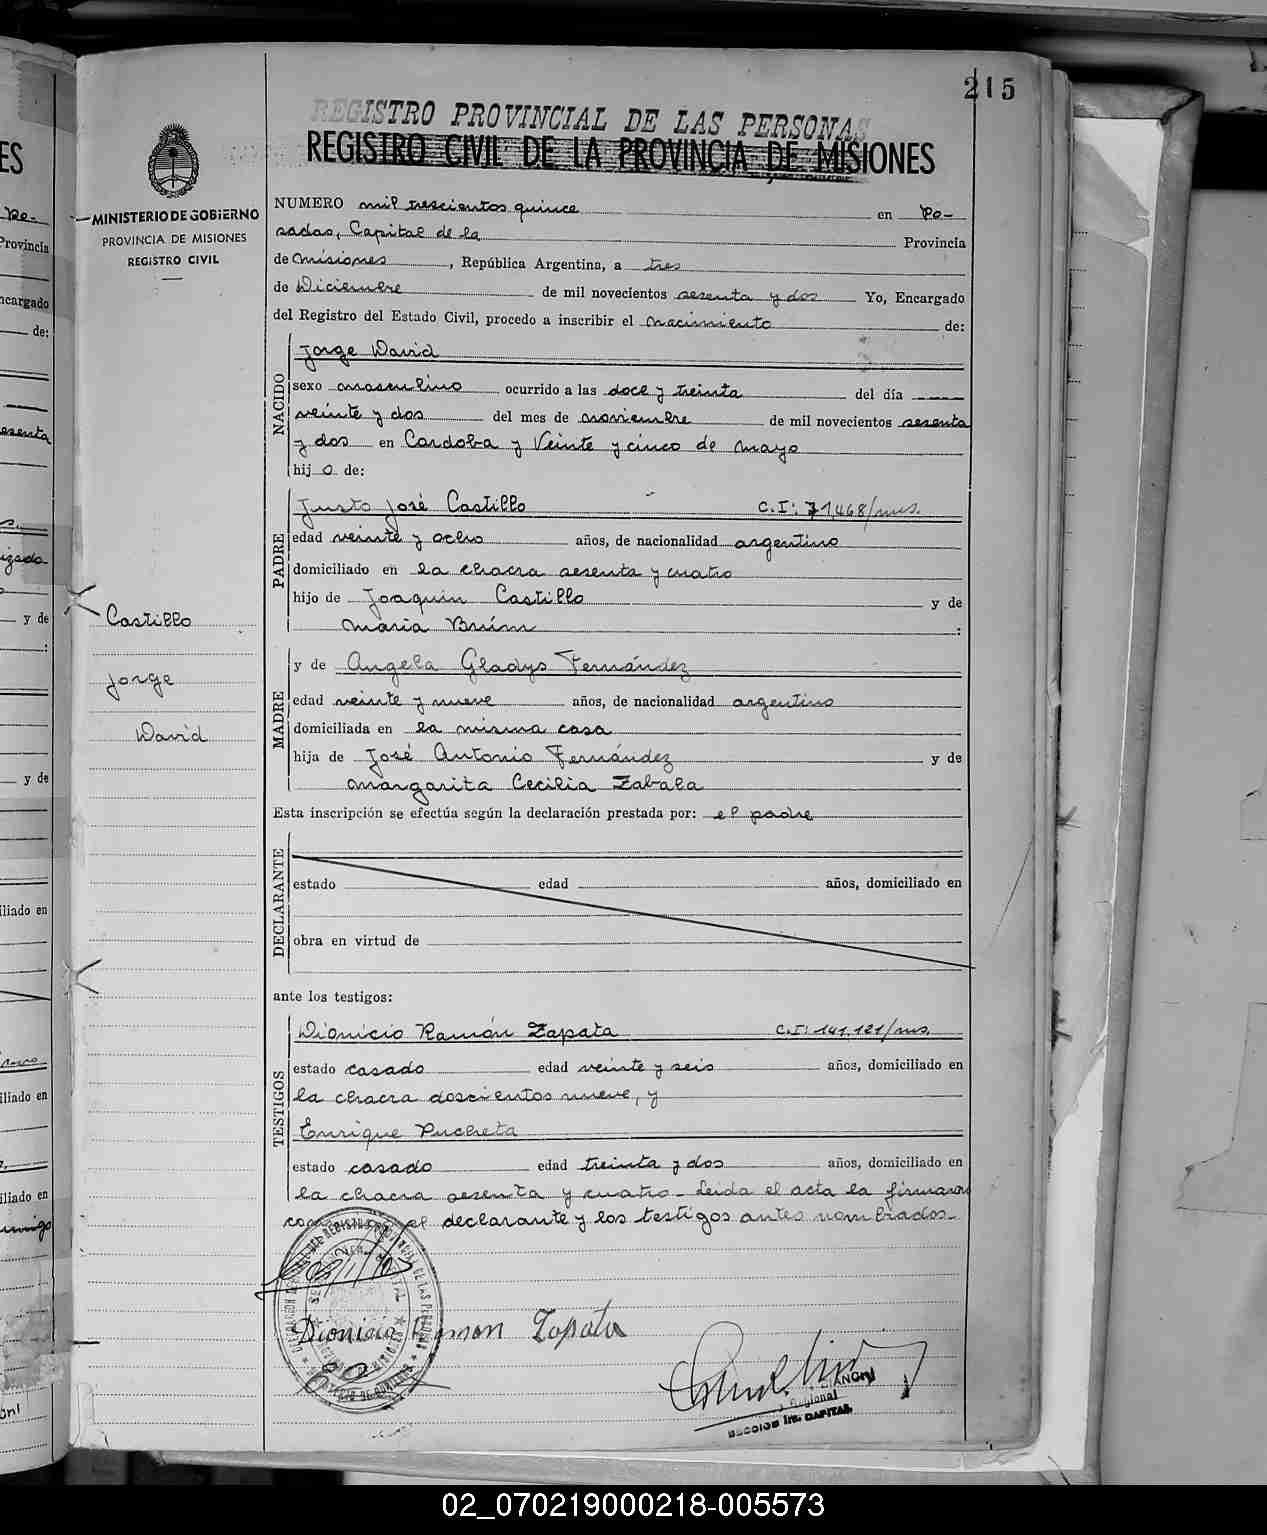 215
REGISTRO PROVINCIAL DE LAS PERSONAS
REGISTRO CIVIL DE LA PROVINCIA DE MISIONES
MINISTERIO DE GOBIERNO
PROVINCIA DE MISIONES
REGISTRO CIVIL
NUMERO mil trescientos quince en Po-
sadas, Capital de la Provincia
de Misiones, República Argentina, a tres
de Diciembre de mil novecientos sesenta y dos Yo, Encargado
del Registro del Estado Civil, procedo a inscribir el nacimiento de:
NACIDO
Jorge David
sexo masculino ocurrido a las doce y treinta del día
veinte y dos del mes de noviembre de mil novecientos sesenta
y dos en Cordoba y Veinte y cinco de mayo
hijo de:
PADRE
Justo José Castillo C.I: 71,468/mis.
edad veinte y ocho años, de nacionalidad argentino
domiciliado en la chacra sesenta y cuatro
hijo de Joaquin Castillo y de
Maria Bruim:
Castillo
Jorge
David
MADRE
y de Angela Gladys Fernández
edad veinte y nueve años, de nacionalidad argentino
domiciliada en la misma casa
hija de José Antonio Fernández y de
Margarita Cecilia Zabala
Esta inscripción se efectúa según la declaración prestada por: el padre
DECLARANTE
estado edad años, domiciliado en
obra en virtud de
ante los testigos:
TESTIGOS
Dionicio Ramón Zapata C.I: 141,121/mis.
estado casado edad veinte y seis años, domiciliado en
la chacra doscientos nueve, y
Enrique Pucheta
estado casado edad treinta y dos años, domiciliado en
la chacra sesenta y cuatro_ Leida el acta la firmaron
el declarante y los testigos antes nombrados_
Dionicio Ramon Zapata
Regional
SECCION 1ra. CAPITAL
02_070219000218-005573